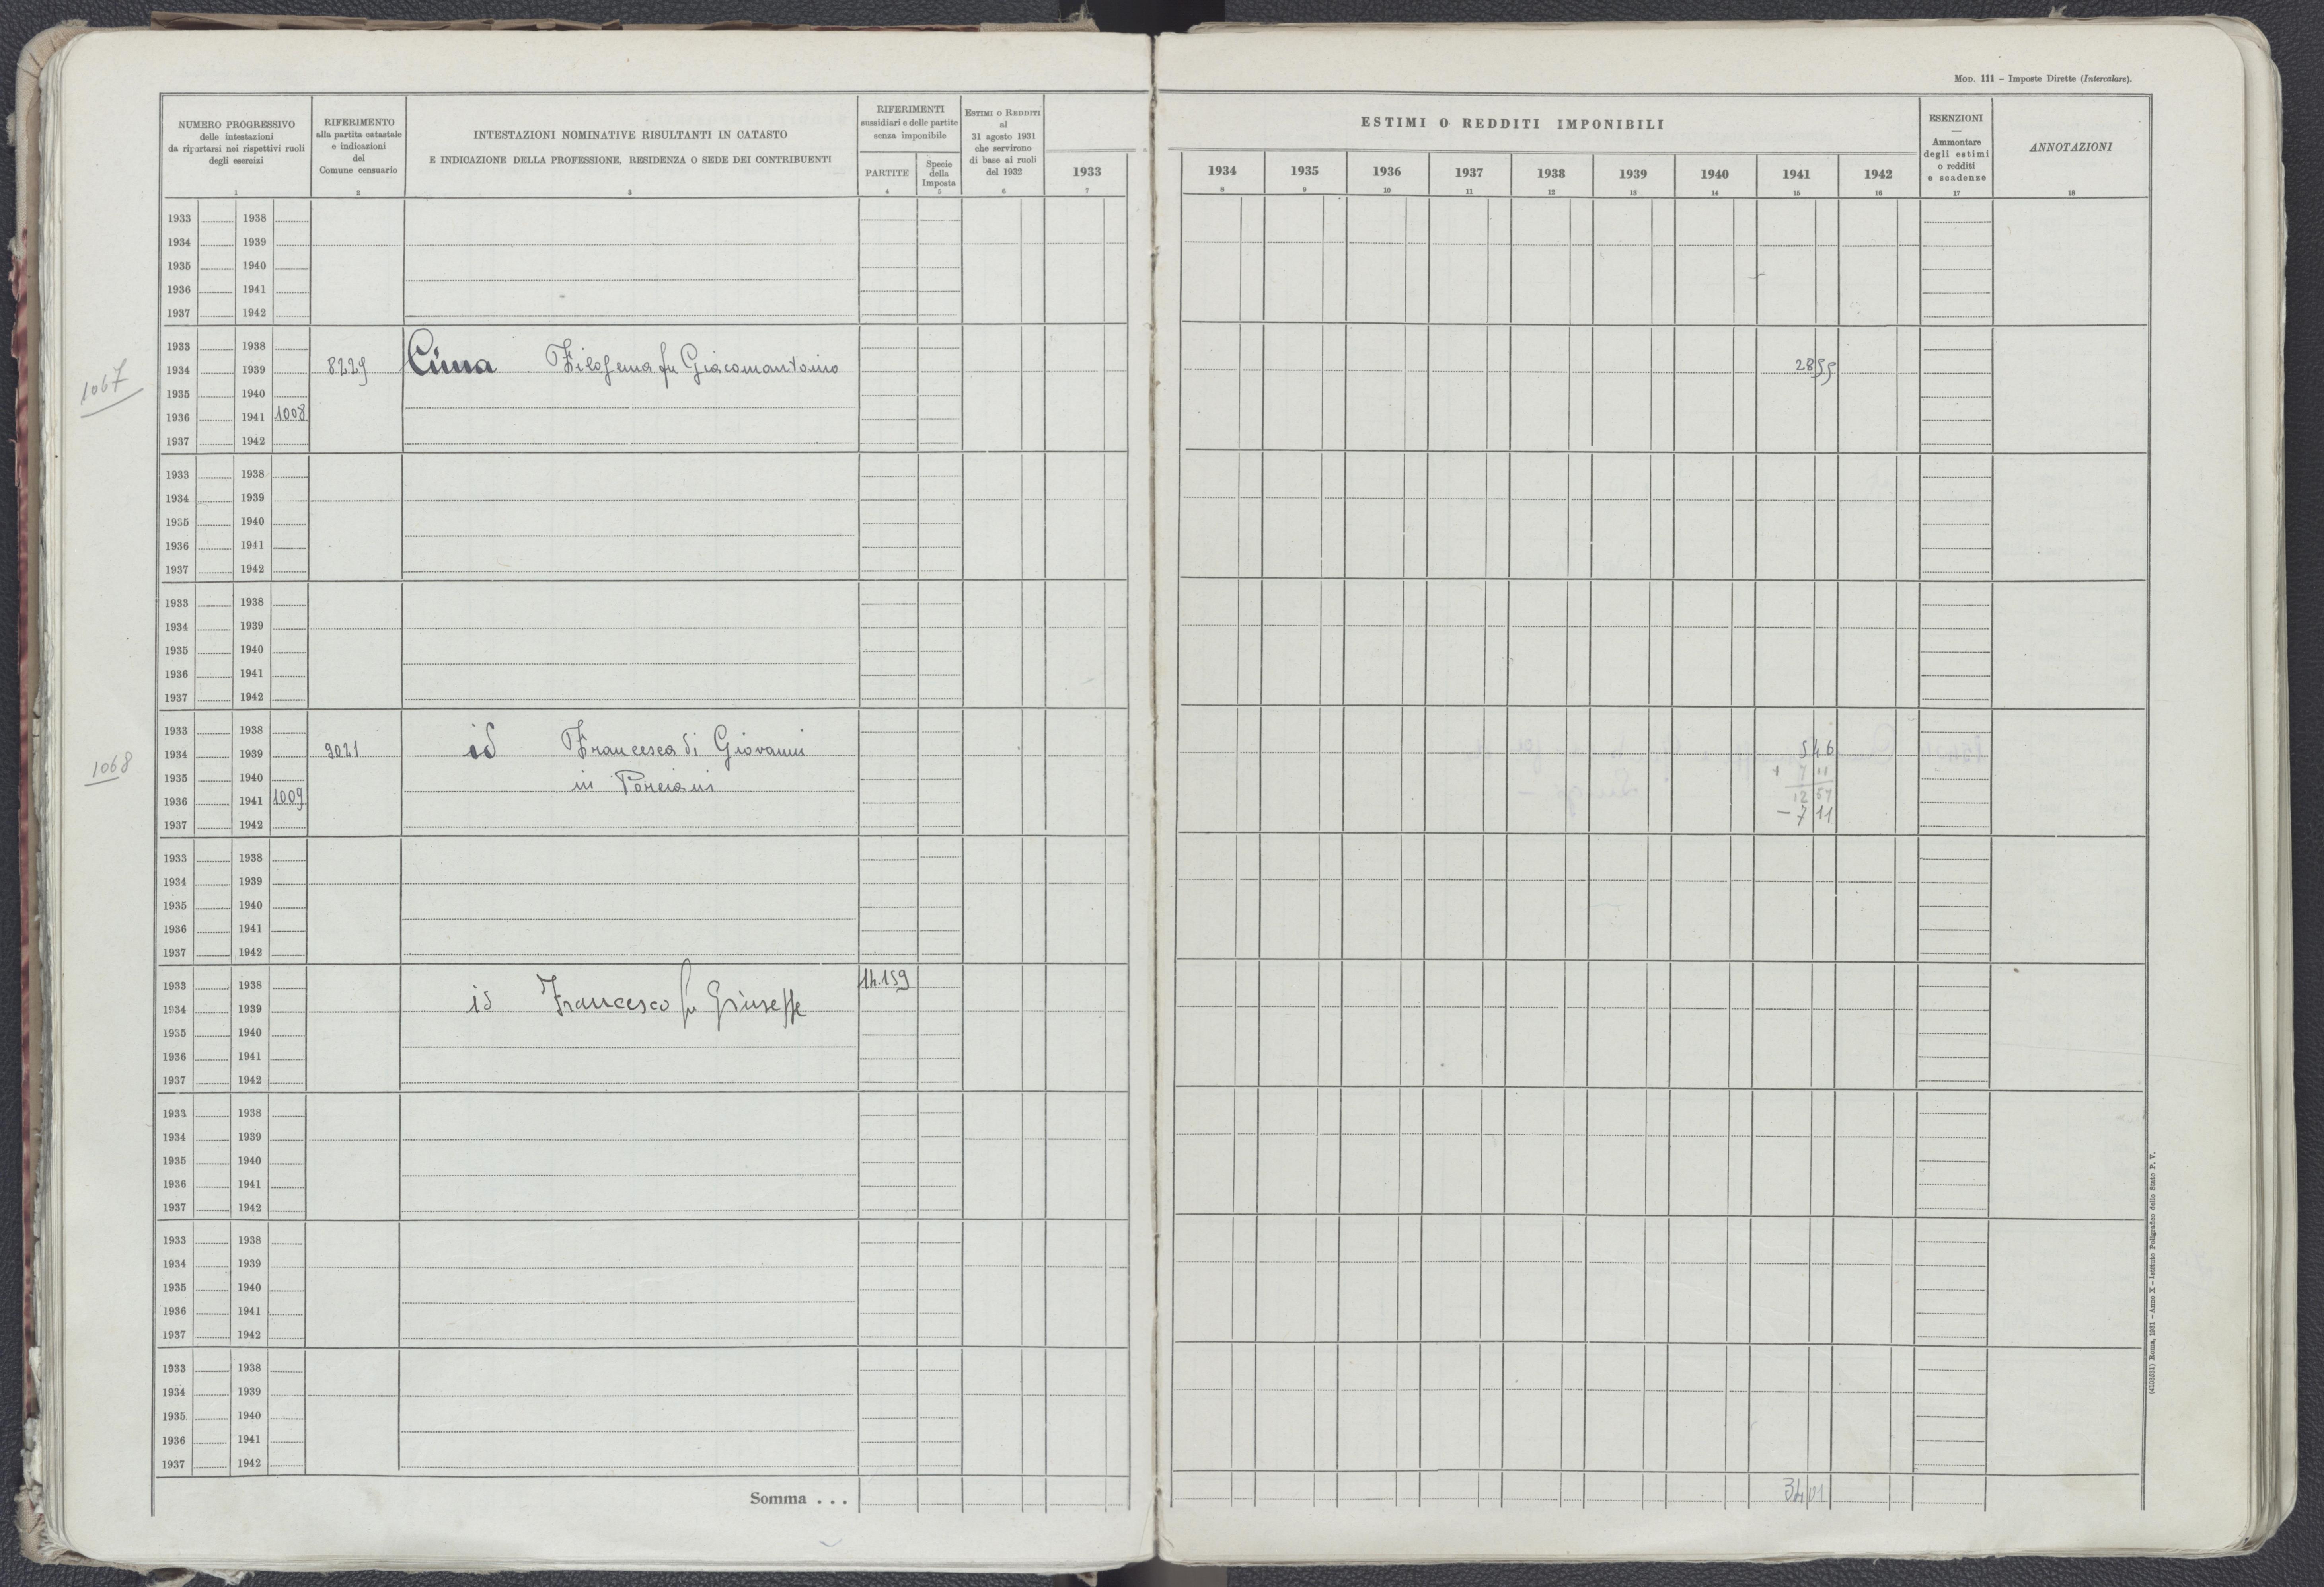 MOD. 111 - Imposte Dirette (Intercalare).
NUMERO PROGRESSIVO
delle intestazioni
da riportarsi nei rispettivi ruoli
degli esercizi
1
RIFERIMENTO
alla partita catastale
e indicazioni
del
Comune censuario
2
INTESTAZIONI NOMINATIVE RISULTANTI IN CATASTO
E INDICAZIONE DELLA PROFESSIONE, RESIDENZA O SEDE DEI CONTRIBUENTI
3
RIFERIMENTI
sussidiari e delle partite
senza imponibile
PARTITE
4
Specie
della
Imposta
5
ESTIMI O REDDITI
al
31 agosto 1931
che servirono
di base ai ruoli
del 1932
6
1933
7
ESTIMI O REDDITI IMPONIBILI
1934 1935 1936 1937 1938 1939 1940 1941 1942
8 9 10 11 12 13 14 15 16
ESENZIONI
—
Ammontare
degli estimi
o redditi
e scadenze
17
ANNOTAZIONI
18
1933 1938
1934 1939
1935 1940
1936 1941
1937 1942
1067
1933 1938
1934 1939 8229 Cima Filofema fu Giacomantonio 2855
1935 1940
1936 1941 1008
1937 1942
1933 1938
1934 1939
1935 1940
1936 1941
1937 1942
1933 1938
1934 1939
1935 1940
1936 1941
1937 1942
1068
1933 1938
1934 1939 9021 id Francesca di Giovanni 546
1935 1940 in Porciani + 7 11
1936 1941 1009 12 57
1937 1942 - 7 11
1933 1938
1934 1939
1935 1940
1936 1941
1937 1942
1933 1938 14.159
1934 1939 id Francesco fu Giuseppe
1935 1940
1936 1941
1937 1942
1933 1938
1934 1939
1935 1940
1936 1941
1937 1942
1933 1938
1934 1939
1935 1940
1936 1941
1937 1942
1933 1938
1934 1939
1935 1940
1936 1941
1937 1942
Somma . . . 34 01
(4103551) Roma, 1931 - Anno X - Istituto Poligrafico dello Stato P. V.